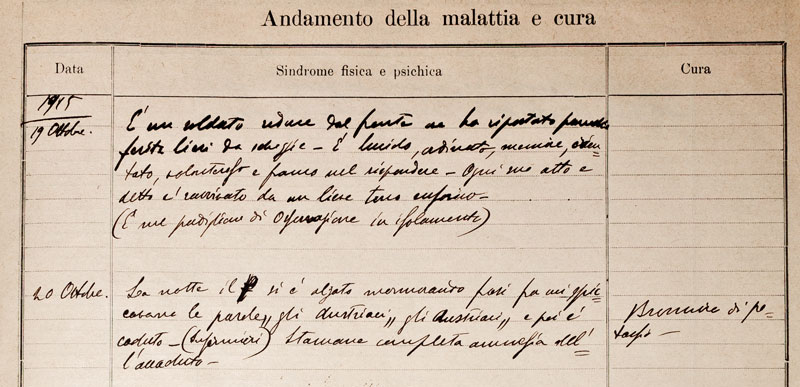 Andamento della malattia e cura
Data
Sindrome fisica e psichica
Cura
1915
19 Ottbre.
E' un soldato reduce dal fronte ove ha riportato parecchie
ferite lievi da schegge – E' lucido, ordinato, memore, orien-
tato, volonteroso e franco nel rispondere – Ogni suo atto e
detto è ravvivato da un lieve tono euforico –
(E' nel padiglione di Osservazione in isolamento)
20 Ottbre.
La notte il P si è alzato mormorando frasi fra cui spic-
cavano le parole „ gli Austriaci „ gli Austriaci „ e poi è
caduto – (Infermieri) Stamane completa amnesia del-
l'accaduto –
Bromuro di po-
tassio –